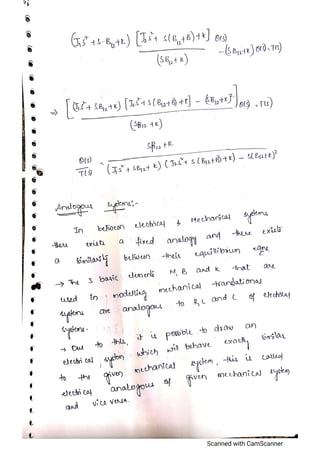 (J₁s² + s·B₁₂ + K) [J₂s² + s(B₁₂+B) + K] / (SB₁₂ + K) θ(s) - (SB₁₂+K) θ(s) = T(s)
⇒ [(J₁s² + sB₁₂ + K) [J₂s² + s(B₁₂+B) + K] - (SB₁₂+K)²] / (SB₁₂ + K) θ(s) = T(s)
θ(s) / T(s) = SB₁₂ + K / (J₁s² + sB₁₂ + K) (J₂s² + s(B₁₂+B) + K) - s(B₁₂+K)²
Analogous Systems:-
In between electrical & Mechanical systems
there exists a fixed analogy and there exists
a similarity between their equilibrium eqns
→ The 3 basic elements M, B and K that are
used in modelling mechanical translational
systems are analogous to R, L and C of electrical
systems.
→ Due to this, it is possible to draw an
electrical system which will behave exactly similar
to the given mechanical system, this is called
electrical analogous of given mechanical system
and vice versa.
Scanned with CamScanner